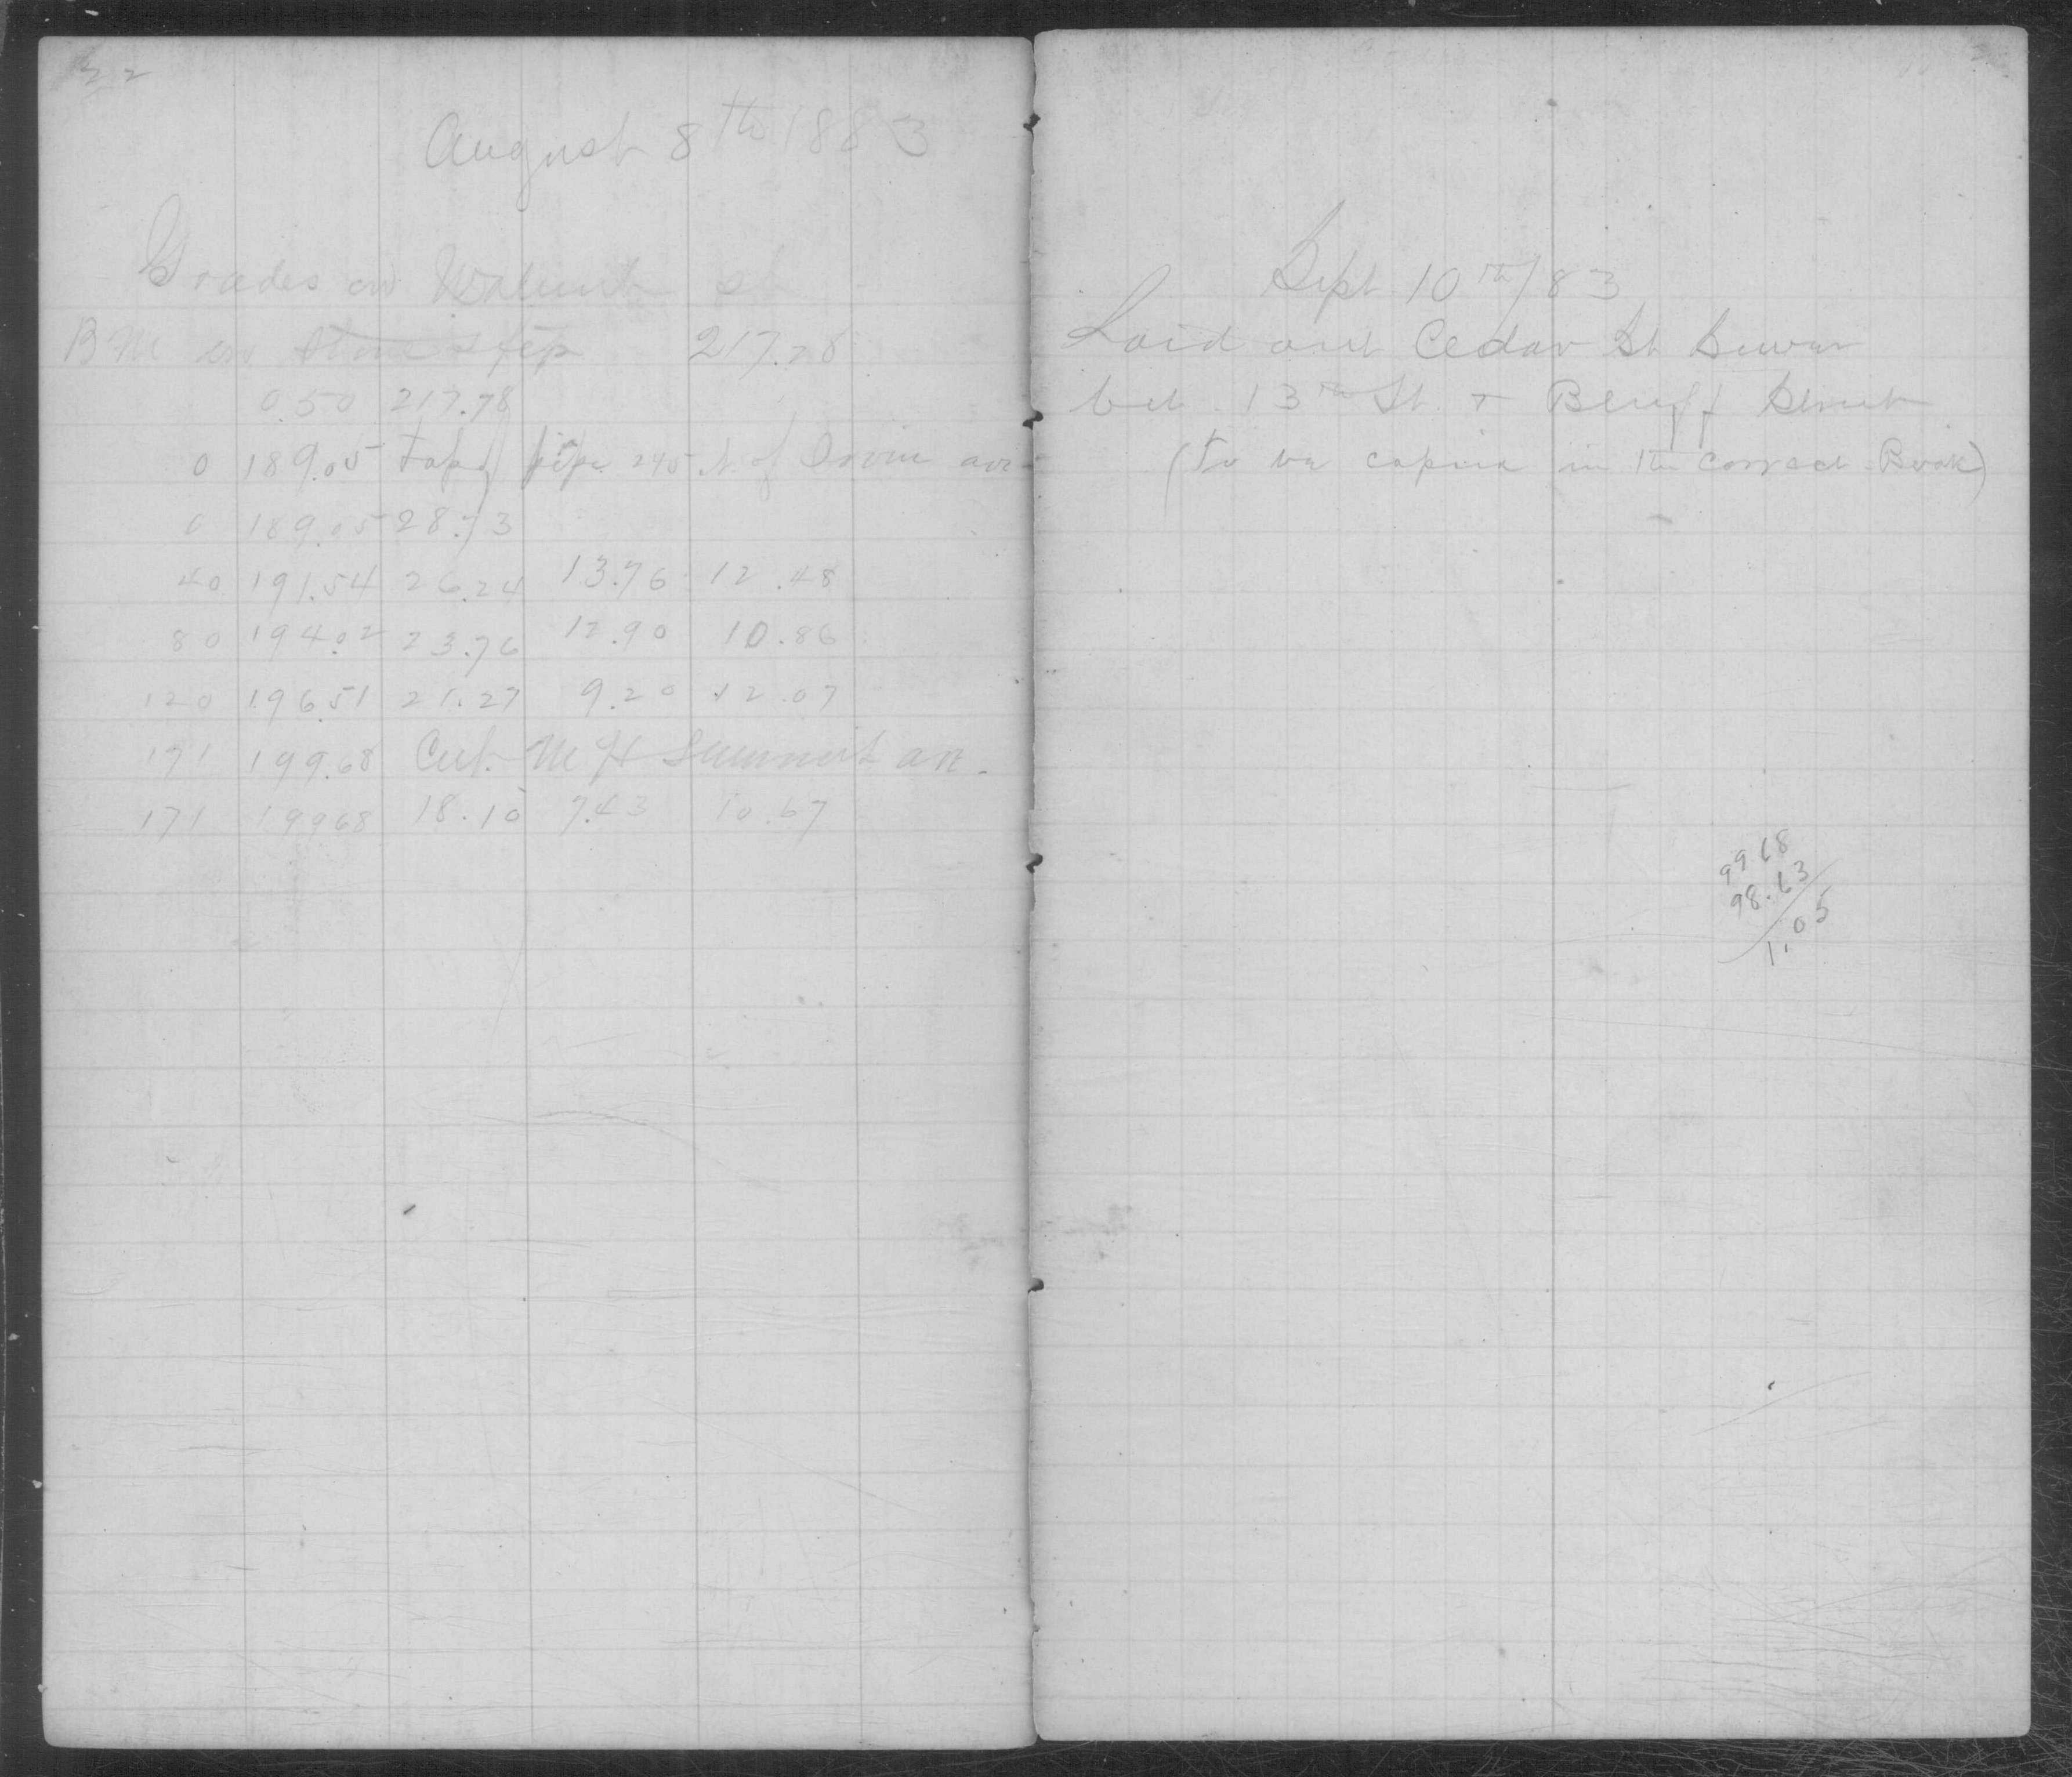 22
August 8th 1883
Grades on Walnut st
BM on Stone Step 217.28
0.50 217.78
0 189.05 top of pipe 245 N. of Irvin ave
0 189.05 28.73
40 191.54 26.24 13.76 12.48
80 194.02 23.76 12.90 10.86
120 196.51 21.27 9.20 12.07
171 199.68 Cut. M H Summit ave.
171 199.68 18.10 7.43 10.67
Sept 10th/83
Laid out Cedar St Sewer
bet. 13th St. + Bluff Street
(to be copied in the correct Book)
99 68
98.63
1.05